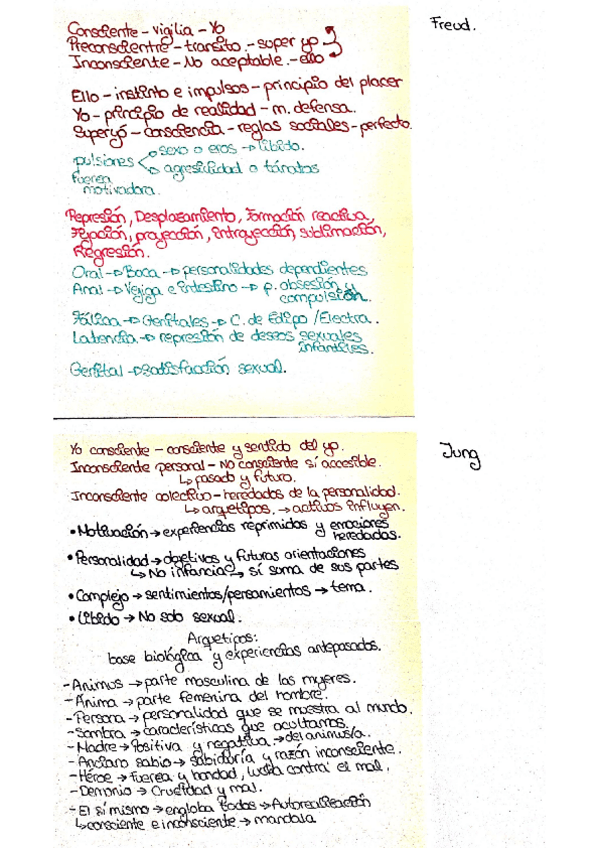 Freud.
Consciente - vigilia - Yo
Preconsciente - transito. - super yo
Inconsciente - No aceptable. - ello
Ello - instinto e impulsos - principio del placer
Yo - principio de realidad - m. defensa.
Superyó - consciencia - reglas sociales - perfecto.
pulsiones
sexo o eros → libido.
agresividad o tánatos
fuerza
motivadora.
Represión, Desplazamiento, Formación reactiva,
Fijación, proyección, introyección, sublimación,
Regresión.
Oral → Boca → personalidades dependientes
Anal → Vejiga e intestino → p. obsesión y
compulsión.
Fálica → Genitales → C. de Edipo / Electra.
Latencia → represión de deseos sexuales
infantiles.
Genital → Satisfacción sexual.
Jung
Yo consciente - consciente y sentido del yo.
Inconsciente personal - No consciente sí accesible.
↳ pasado y futuro.
Inconsciente colectivo - heredados de la personalidad.
↳ arquetipos. → activos influyen.
• Motivación → experiencias reprimidas y emociones
heredadas.
• Personalidad → objetivos y futuras orientaciones
↳ No infancia ↳ sí suma de sus partes
• Complejo → sentimientos/pensamientos → tema.
• Libido → No solo sexual.
Arquetipos:
base biológica y experiencias antepasados.
- Animus → parte masculina de las mujeres.
- Ánima → parte femenina del hombre.
- Persona → personalidad que se muestra al mundo.
- Sombra → características que ocultamos.
- Madre → Positiva y negativa. → del animus/a.
- Anciano sabio → sabiduría y razón inconsciente.
- Héroe → fuerza y bondad, lucha contra el mal.
- Demonio → Crueldad y mal.
- El sí mismo → engloba todos → Autorrealización
↳ consciente e inconsciente → mandala